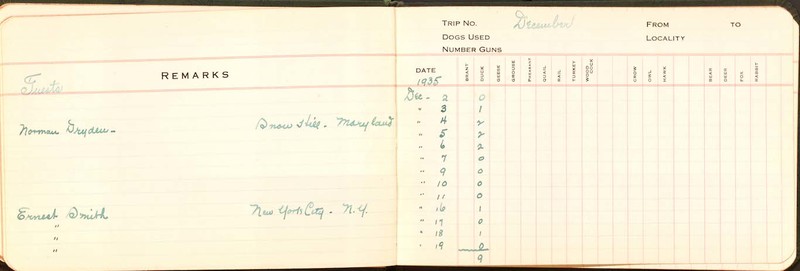 REMARKS
Guests
Norman Dryden - Snow Hill - Maryland
Ernest Smith New York City - N.Y.
"
"
"
TRIP NO. December FROM TO
DOGS USED LOCALITY
NUMBER GUNS
DATE BRANT DUCK GEESE GROUSE PHEASANT QUAIL RAIL TURKEY WOOD COCK CROW OWL HAWK BEAR DEER FOX RABBIT
1935
Dec - 2 0
" 3 1
" 4 2
" 5 2
" 6 2
" 7 0
" 9 0
" 10 0
" 11 0
" 16 1
" 17 0
" 18 1
" 19 0
9